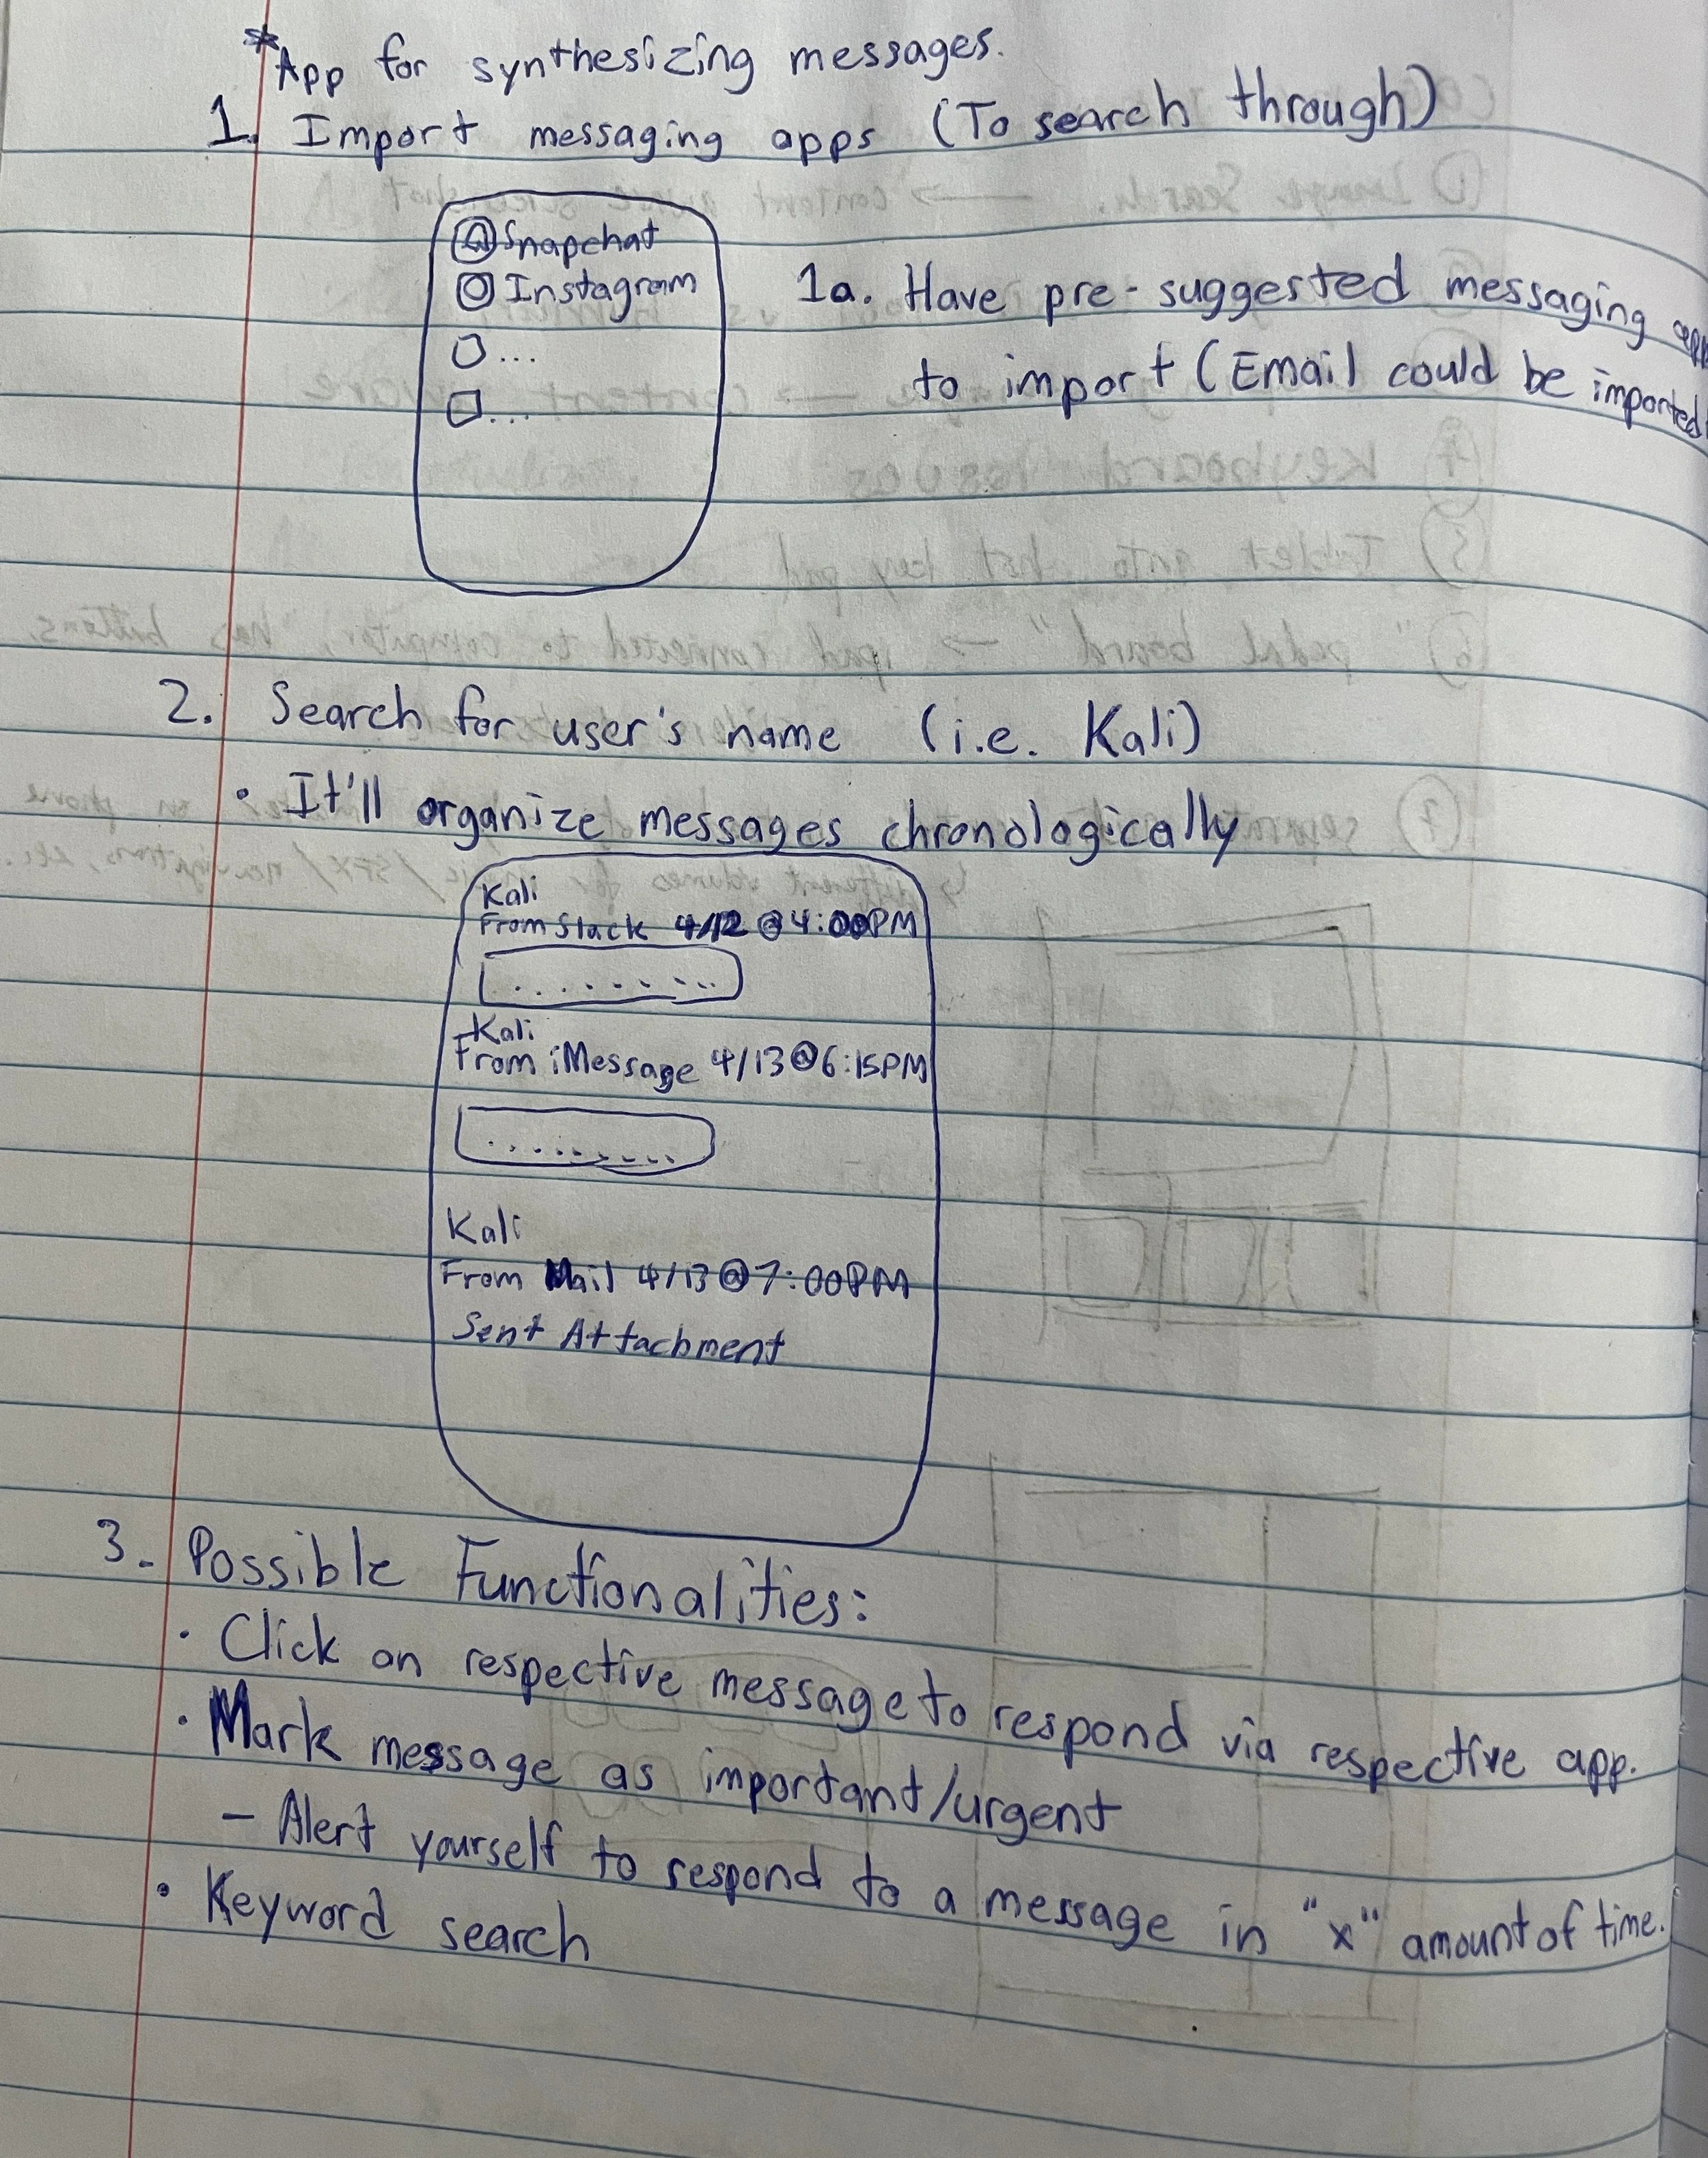 *App for synthesizing messages.
1. Import messaging apps (To search through)
Snapchat
Instagram
...
...
1a. Have pre-suggested messaging app
to import (Email could be imported
2. Search for user's name (i.e. Kali)
• It'll organize messages chronologically
Kali
From Slack 4/12 @ 4:00PM
.........
Kali
From iMessage 4/13 @ 6:15PM
.........
Kali
From Mail 4/13 @ 7:00PM
Sent Attachment
3. Possible Functionalities:
• Click on respective message to respond via respective app.
• Mark message as important/urgent
– Alert yourself to respond to a message in "x" amount of time.
• Keyword search